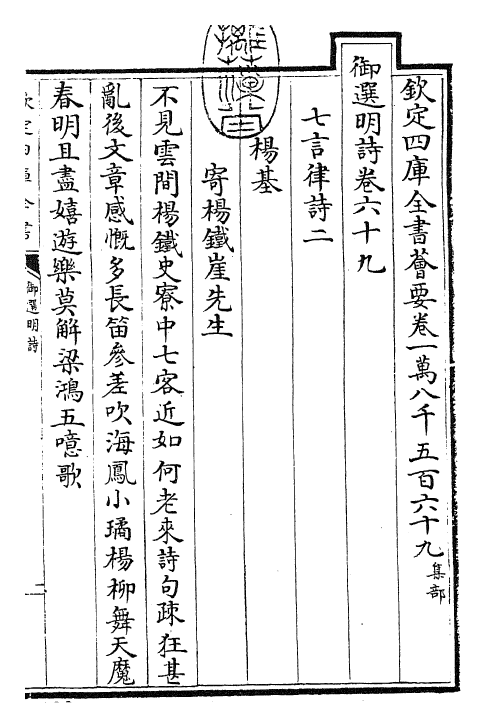 欽定四庫全書薈要卷一萬八千五百六十九集部
御選明詩卷六十九
七言律詩二
楊基
寄楊鐵崖先生
不見雲間楊鐵史寮中七客近如何老來詩句疎狂甚
亂後文章感慨多長笛參差吹海鳳小璚楊柳舞天魔
春明且盡嬉遊樂莫解梁鴻五噫歌
欽定四庫全書
御選明詩